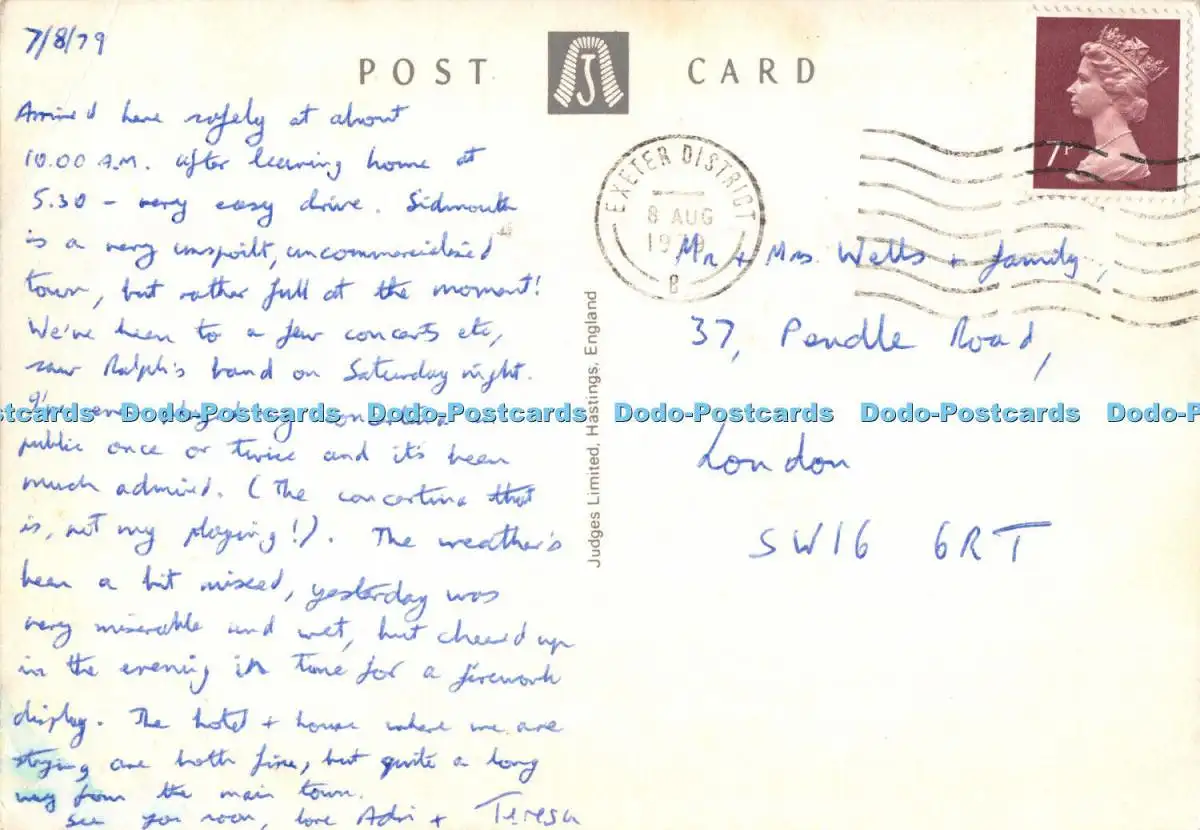 7/8/79
POST CARD
J
Arrived here safely at about
10.00 A.M. after leaving home at
5.30 – very easy drive. Sidmouth
is a very unspoilt, uncommercialised
town, but rather full at the moment!
We've been to a few concerts etc,
saw Ralph's band on Saturday night.
public once or twice and it's been
much admired. (The concertina that
is, not my playing!). The weather's
been a bit mixed, yesterday was
very miserable and wet, but cheered up
in the evening in time for a firework
display. The hotel + house where we are
staying are both fine, but quite a long
way from the main town.
See you soon, love Adri + Teresa
Judges Limited, Hastings, England
EXETER DISTRICT
8 AUG
1979
B
7P
Mr + Mrs. Wells + family,
37, Pendle Road,
London
SW16 6RT
Dodo-Postcards Dodo-Postcards Dodo-Postcards Dodo-Postcards